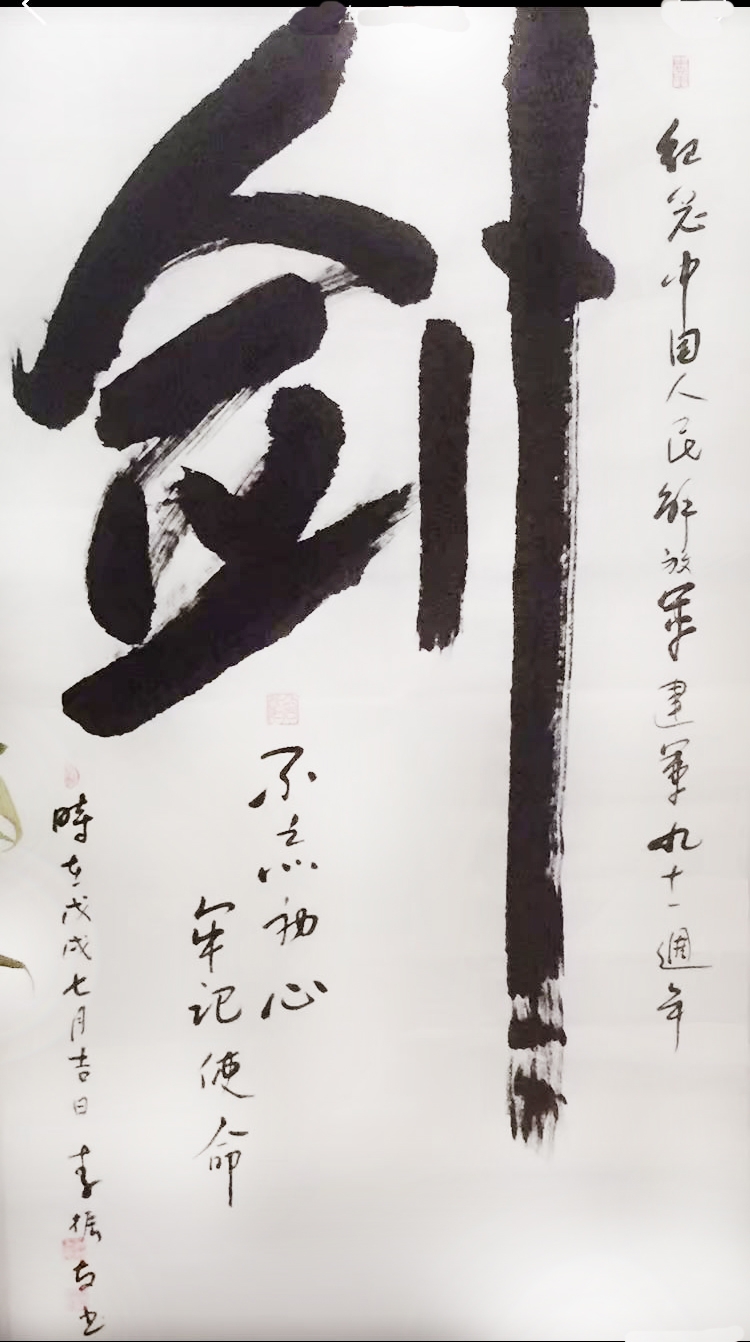 纪念中国人民解放军建军九十一週年
剑
不忘初心
牢记使命
時在戊戌七月吉日 李振 书